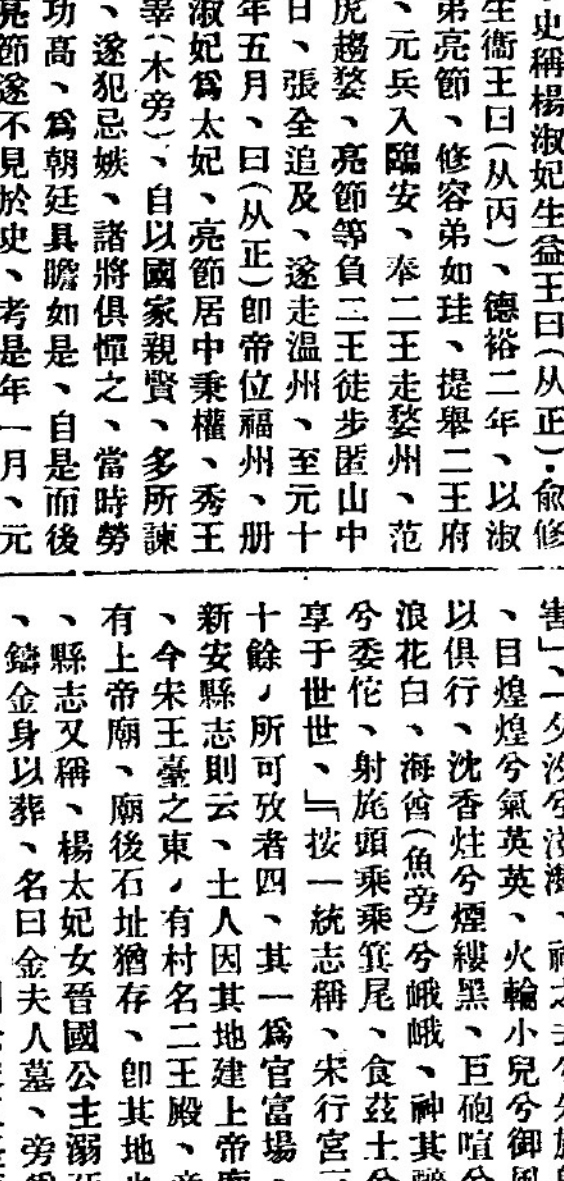 史稱楊淑妃生益王曰(从正)·俞修
生衞王曰(从丙)、德裕二年、以淑
弟亮節、修容弟如珪、提舉二王府
、元兵入臨安、奉二王走婺州、范
虎趨婺、亮節等負二王徒步匿山中
日、張全追及、遂走温州、至元十
年五月、曰(从正)卽帝位福州、册
淑妃爲太妃、亮節居中秉權、秀王
睾(木旁)、自以國家親賢、多所諫
、遂犯忌嫉、諸將俱憚之、當時勞
功高、爲朝廷具瞻如是、自是而後
亮節遂不見於史、考是年一月、元
害」、一夕汐兮
、目煌煌兮氣英英、火輪小兒兮御風
以俱行、沈香炷兮煙縷黑、巨砲喧兮
浪花白、海酋(魚旁)兮峨峨、神其醉
兮委佗、射旄頭乘乘箕尾、食茲土兮
享于世世、』按一統志稱、宋行宮三
十餘，所可攷者四、其一爲官富場、
新安縣志則云、土人因其地建上帝廟
、今宋王臺之東，有村名二王殿、
有上帝廟、廟後石址猶存、卽其地也
、縣志又稱、楊太妃女晉國公主溺
、鑄金身以葬、名曰金夫人墓、旁